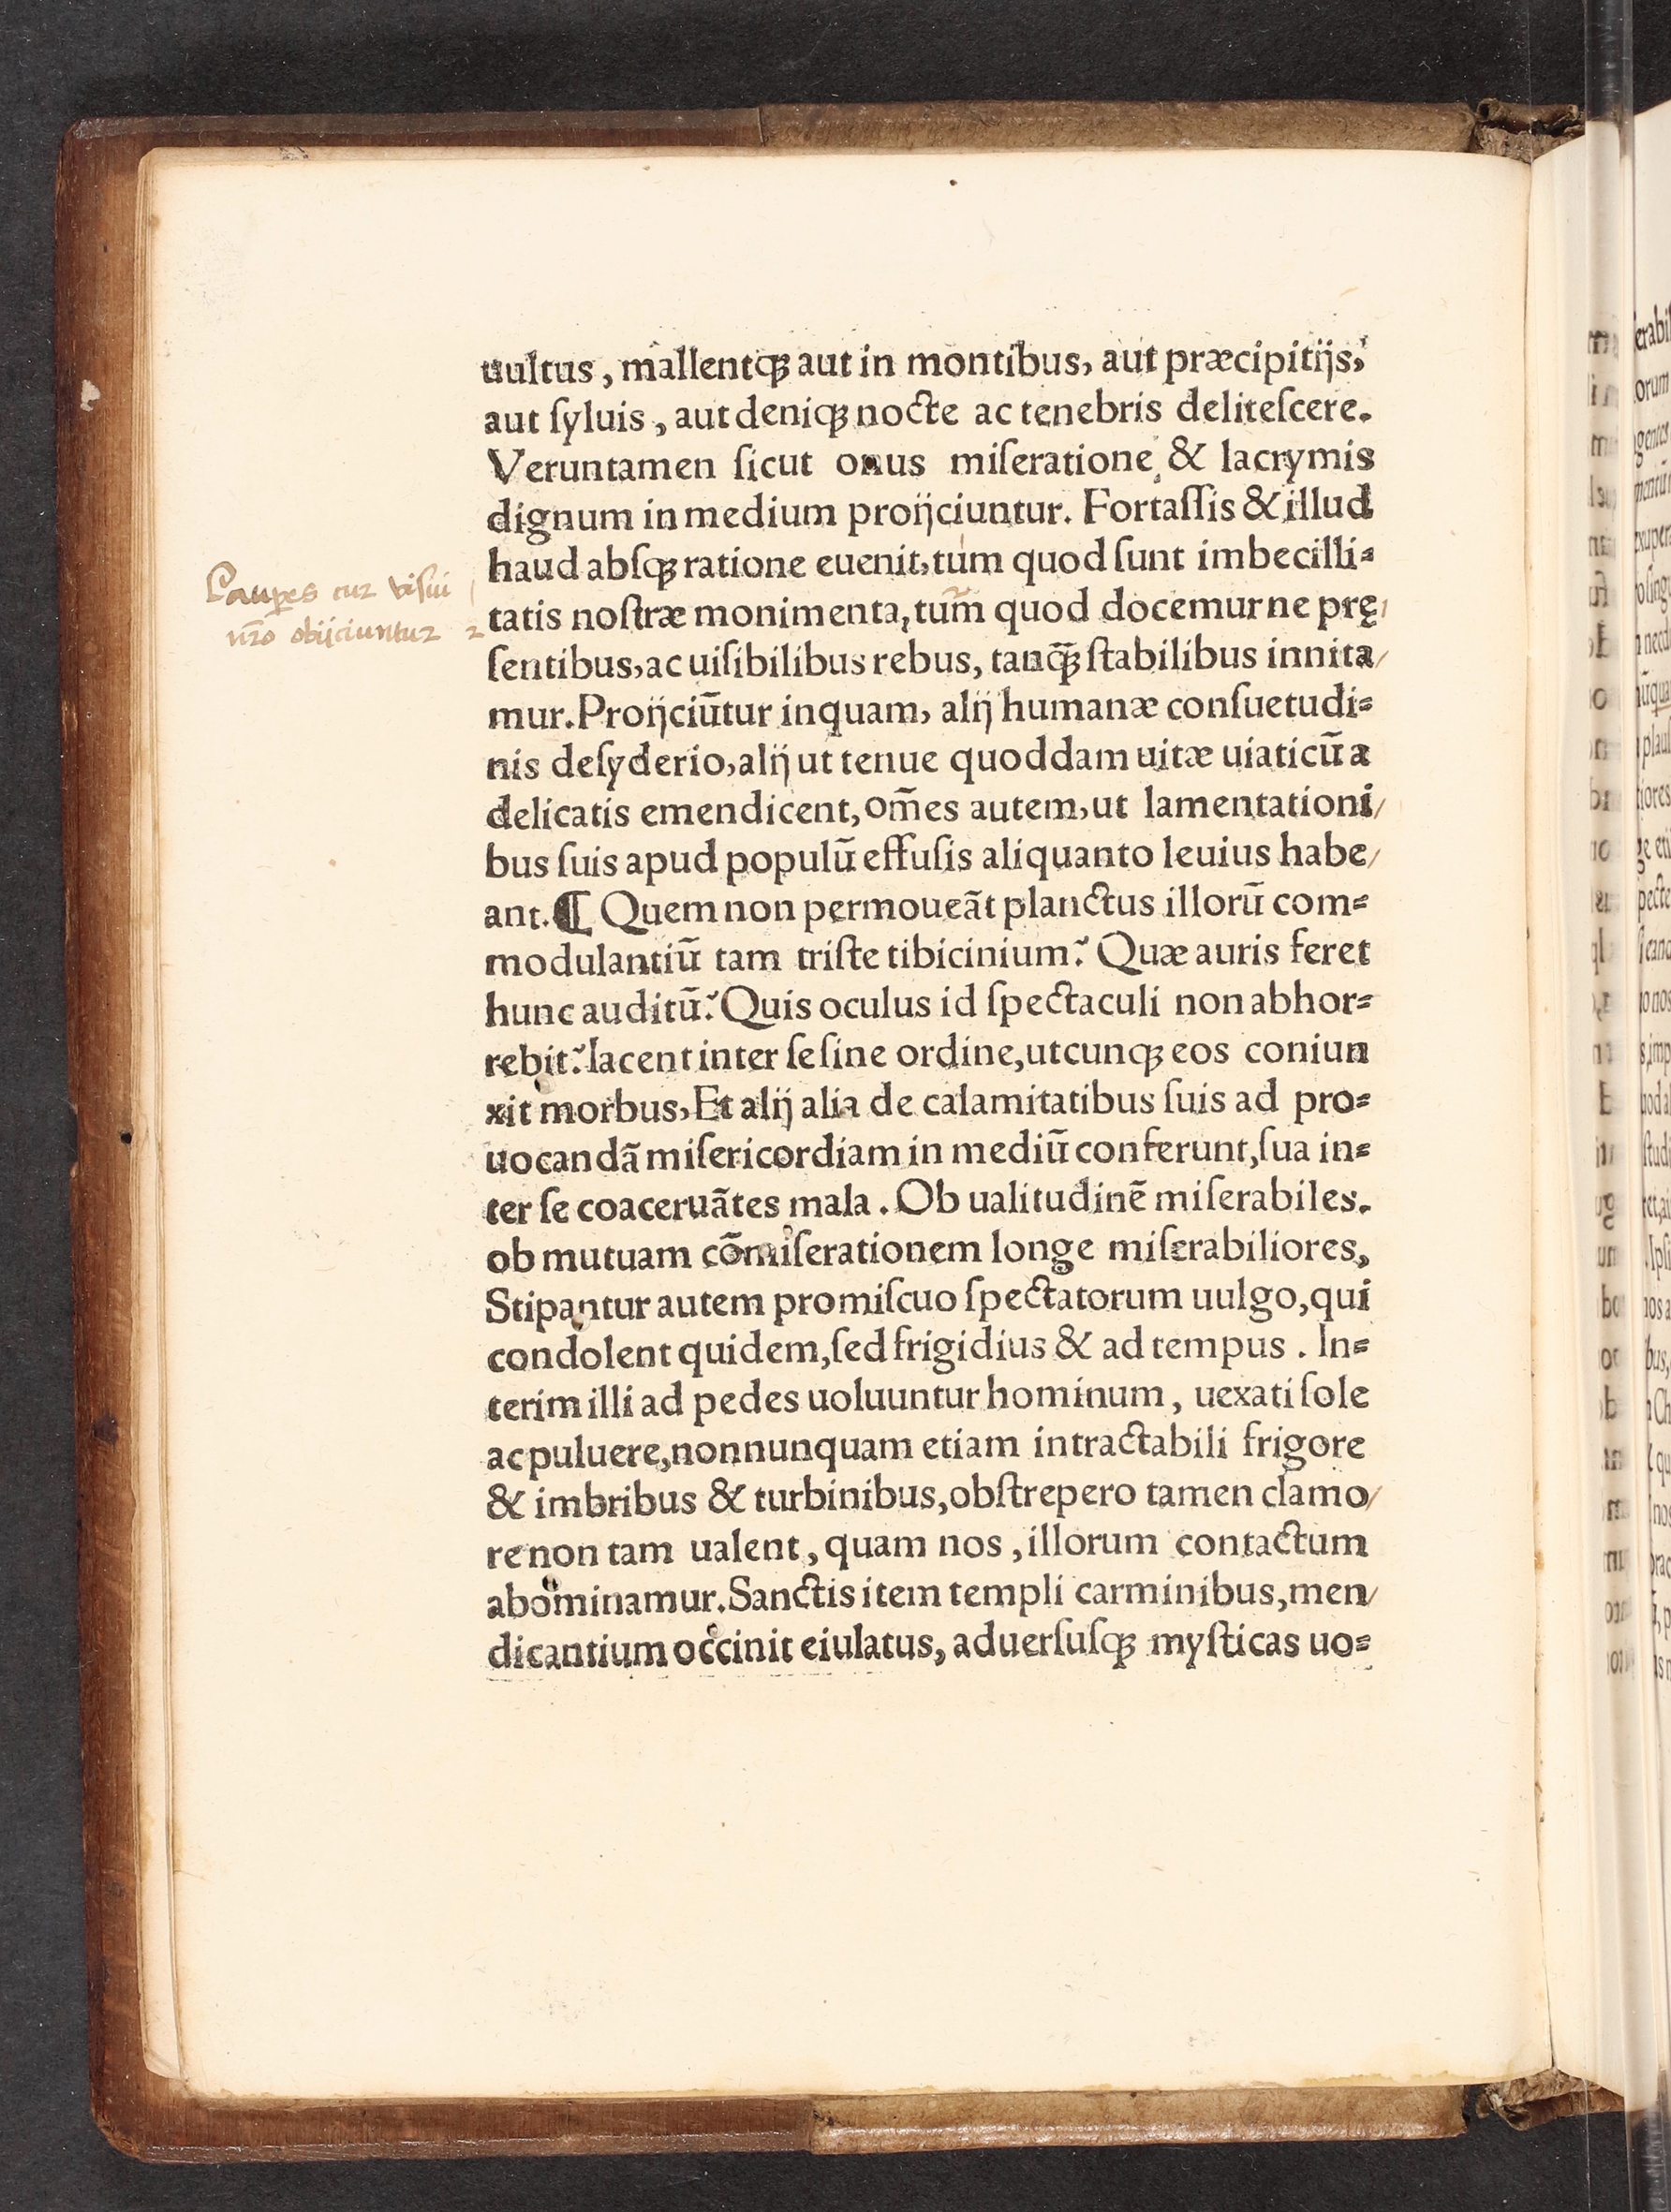 uultus, mallentqꝫ aut in montibus, aut præcipitijs,
aut ſyluis, aut deniqꝫ nocte ac tenebris deliteſcere.
Veruntamen ſicut onus miſeratione & lacrymis
dignum in medium proijciuntur. Fortaſſis & illud
haud abſqꝫ ratione euenit, tum quod ſunt imbecilli⸗
Pauꝑes cur viſui
tatis noſtræ monimenta, tum quod docemur ne prę/
nr̃o obijciuntur
ſentibus, ac uiſibilibus rebus, tanqꝫ̃ ſtabilibus innita/
mur. Proijciũtur inquam, alij humanæ conſuetudi⸗
nis deſyderio, alij ut tenue quoddam uitæ uiaticũ a
delicatis emendicent, om̃es autem, ut lamentationi/
bus ſuis apud populũ effuſis aliquanto leuius habe/
ant. ¶ Quem non permoueãt planctus illorũ com⸗
modulantiũ tam triſte tibicinium? Quæ auris feret
hunc auditũ? Quis oculus id ſpectaculi non abhor⸗
rebit? Iacent inter ſe ſine ordine, utcunqꝫ eos coniun
xit morbus, Et alij alia de calamitatibus ſuis ad pro⸗
uocandã miſericordiam in mediũ conferunt, ſua in⸗
ter ſe coaceruãtes mala. Ob ualitudinẽ miſerabiles.
ob mutuam cõmiſerationem longe miſerabiliores,
Stipantur autem promiſcuo ſpectatorum uulgo, qui
condolent quidem, ſed frigidius & ad tempus. In⸗
terim illi ad pedes uoluuntur hominum, uexati ſole
ac puluere, nonnunquam etiam intractabili frigore
& imbribus & turbinibus, obſtrepero tamen clamo/
re non tam ualent, quam nos, illorum contactum
abominamur. Sanctis item templi carminibus, men/
dicantium occinit eiulatus, aduerſuſqꝫ myſticas uo⸗